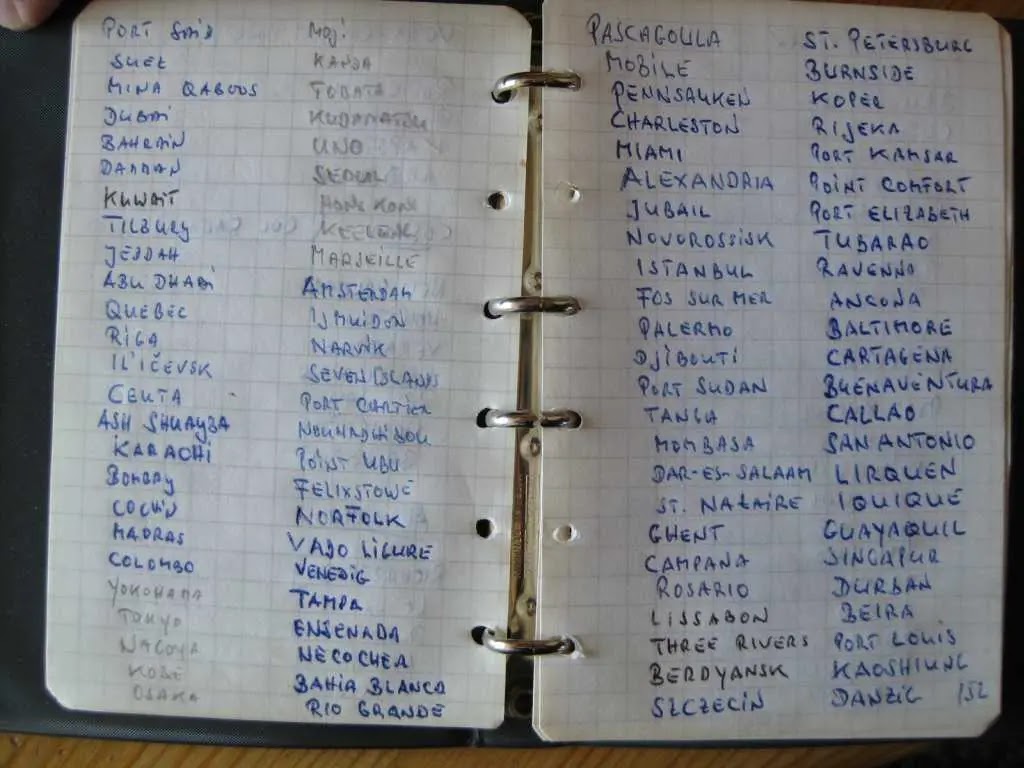 PORT SAID
SUEZ
MINA QABOOS
DUBAI
BAHRAIN
DAMMAN
KUWAIT
TILBURY
JEDDAH
ABU DHABI
QUEBEC
RIGA
IL'IČEVSK
CEUTA
ASH SHUAYBA
KARACHI
BOMBAY
COCHIN
MADRAS
COLOMBO
YOKOHAMA
TOKYO
NAGOYA
KOBE
OSAKA
MOJI
KANDA
TOBATA
KUDAMATSU
UNO
SEOUL
HONG KONG
KEELUNG
MARSEILLE
AMSTERDAM
IJMUIDEN
NARVIK
SEVEN ISLANDS
PORT CARTIER
NOUHADHIBOU
POINT UBU
FELIXSTOWE
NORFOLK
VADO LIGURE
VENEDIG
TAMPA
ENSENADA
NECOCHEA
BAHIA BLANCA
RIO GRANDE
PASCAGOULA
MOBILE
PENNSAUKEN
CHARLESTON
MIAMI
ALEXANDRIA
JUBAIL
NOVOROSSISK
ISTANBUL
FOS SUR MER
PALERMO
DJIBOUTI
PORT SUDAN
TANGA
MOMBASA
DAR-ES-SALAAM
ST. NAZAIRE
GHENT
CAMPANA
ROSARIO
LISSABON
THREE RIVERS
BERDYANSK
SZCZECIN
ST. PETERSBURG
BURNSIDE
KOPER
RIJEKA
PORT KAMSAR
POINT COMFORT
PORT ELIZABETH
TUBARAO
RAVENNA
ANCONA
BALTIMORE
CARTAGENA
BUENAVENTURA
CALLAO
SAN ANTONIO
LIRQUEN
IQUIQUE
GUAYAQUIL
SINGAPUR
DURBAN
BEIRA
PORT LOUIS
KAOSHIUNG
DANZIG 152